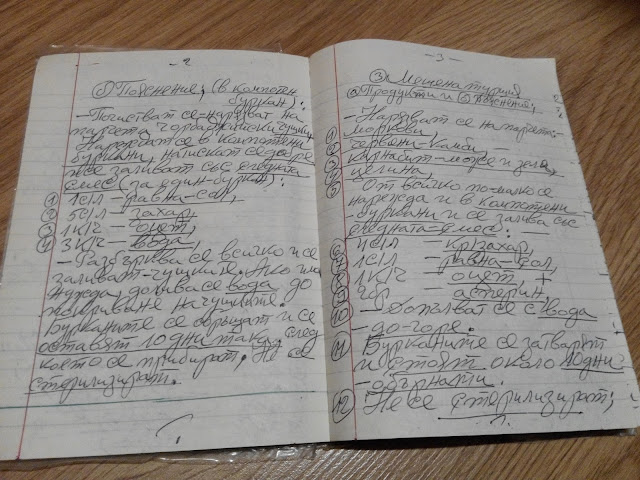 - 2 -
б) Пояснение; (в компотен
буркан):
- Почистват се - нарязват на
парчета, чорбаджийски чушки.
Нареждат се в компотени
буркани, натискат се добре
се заливат със следната
смес (за един буркан):
① 1 с/л - равна - сол,
② 5 с/л - захар,
③ 1 к/ч - оцет,
④ 3 к/ч - вода,
- Разбърква се всичко и се
заливат - чушките. Ако има
нужда, долива се вода до
покриване на чушките.
Бурканите се обръщат и се
оставят 10 дни така, след
което се прибират. Не се
стерилизират.
- 3 -
③ Мешена туршия
а) Продукти и б) пояснение;
- Нарязват се на парчета:
① моркови,
② червени - камби,
③ карнабит - може и зеле,
④ целина,
⑤ - От всичко по-малко се
нарежда и в компотени
- буркани и се залива със
следната - смес:
⑥ 1 с/л - кр/захар,
⑦ 1 с/л - равна - сол,
⑧ 1 к/ч - оцет, +
⑨ 2 бр. - асперин
⑩ - Допълват се с вода
- до - горе.
⑪ Бурканите се затварят
и стоят около 10 дни
- обърнати.
⑫ Не се стерилизират;